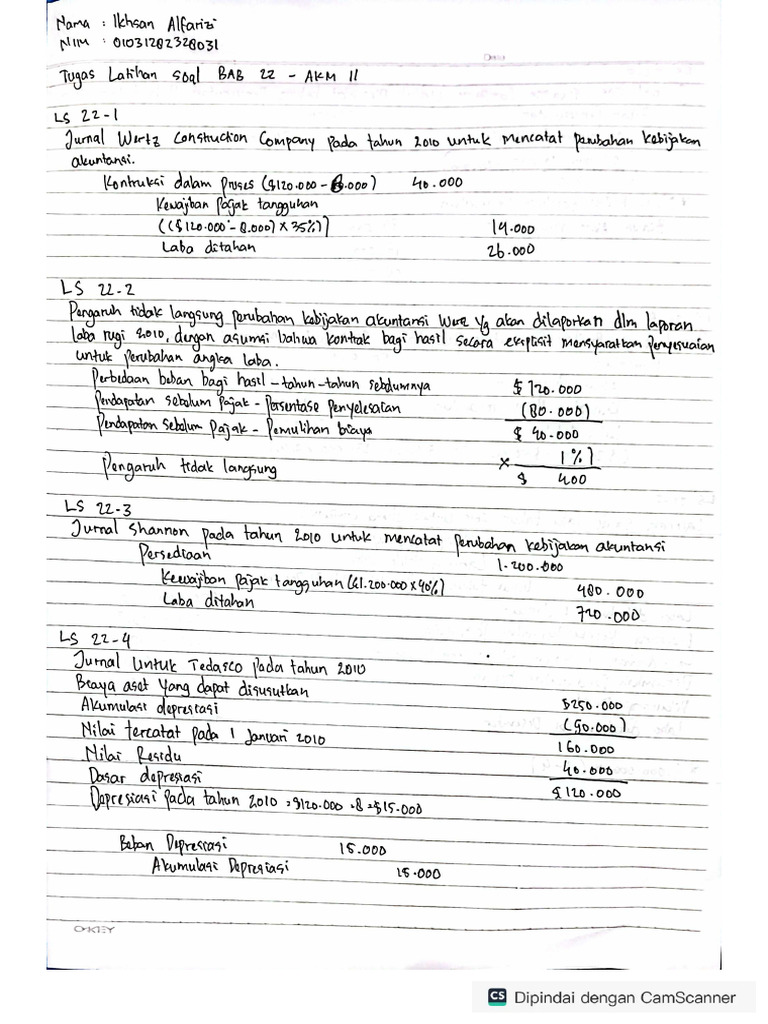 Nama : Ikhsan Alfarizi
NIM : 01031282328031
Tugas Latihan Soal BAB 22 - AKM II
LS 22-1
Jurnal Wertz Construction Company pada tahun 2010 untuk mencatat perubahan kebijakan
akuntansi.
Kontruksi dalam proses ($120.000 - 8.000) 40.000
Kewajiban pajak tangguhan
(($120.000 - 8.000) x 35%) 14.000
Laba ditahan 26.000
LS 22-2
Pengaruh tidak langsung perubahan kebijakan akuntansi yg akan dilaporkan dlm laporan
laba rugi 2010, dengan asumsi bahwa kontrak bagi hasil secara eksplisit mensyaratkan penyesuaian
untuk perubahan angka laba.
Perbedaan beban bagi hasil - tahun-tahun sebelumnya $ 120.000
Pendapatan sebelum pajak - Persentase penyelesaian (80.000)
Pendapatan sebelum pajak - Pemulihan biaya $ 40.000
x 1%)
Pengaruh tidak langsung $ 400
LS 22-3
Jurnal Shannon pada tahun 2010 untuk mencatat perubahan kebijakan akuntansi
Persediaan 1.200.000
Kewajiban pajak tangguhan (1.200.000 x 40%) 480.000
Laba ditahan 720.000
LS 22-4
Jurnal untuk Tedasco pada tahun 2010
Biaya aset yang dapat disusutkan $250.000
Akumulasi depresiasi (90.000)
Nilai tercatat pada 1 Januari 2010 160.000
Nilai Residu 40.000
Dasar depresiasi $ 120.000
Depresiasi pada tahun 2010 = $120.000 : 8 = $15.000
Beban Depresiasi 15.000
Akumulasi Depresiasi 15.000
OKEY
CS Dipindai dengan CamScanner